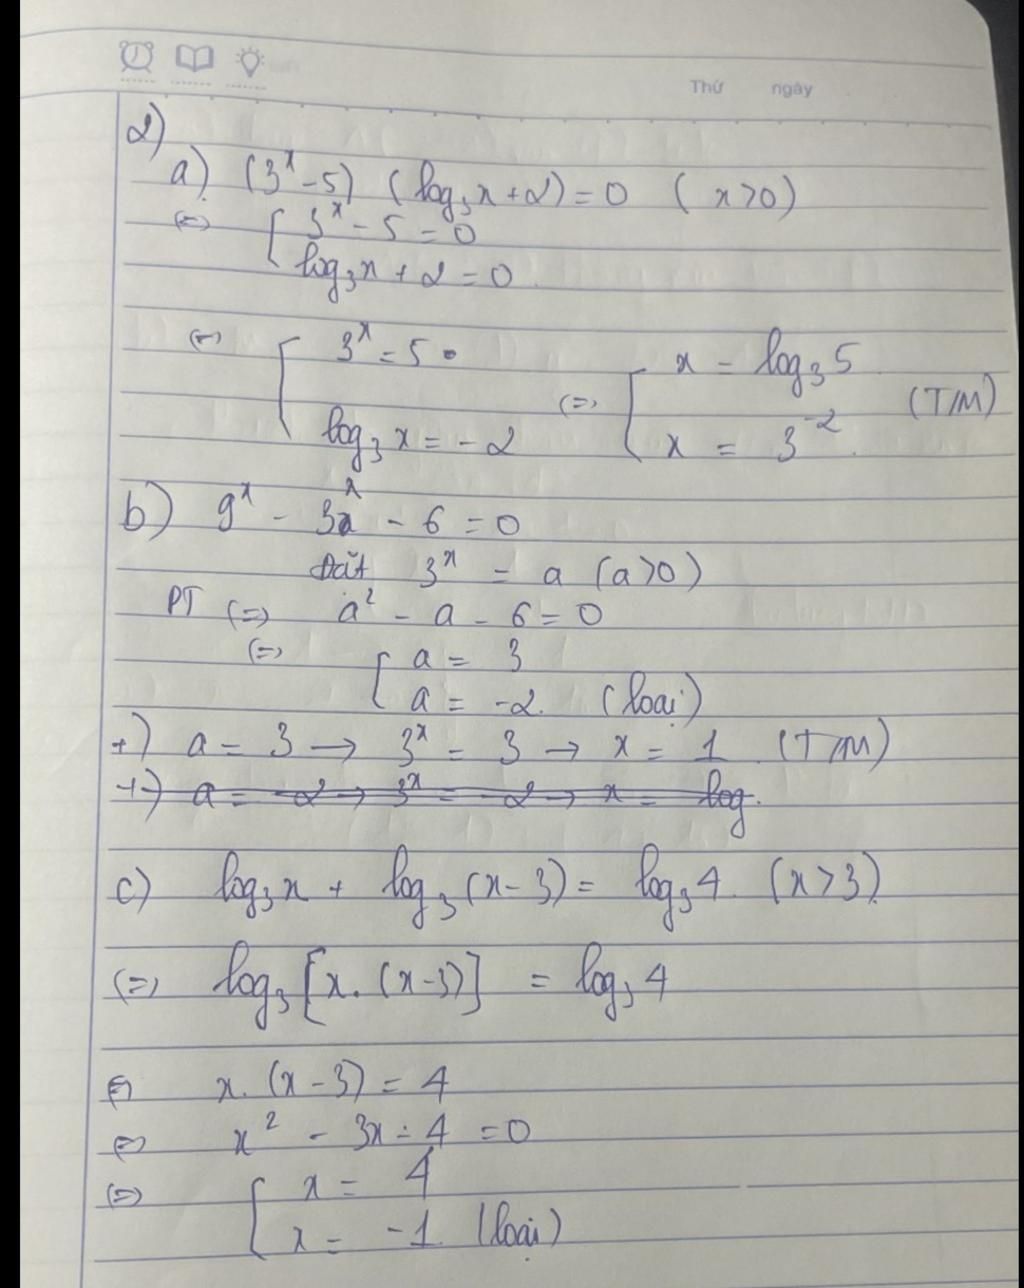 Thứ ngày
2)
a) (3^x - 5) (log₃x + 2) = 0 (x > 0)
(=) [ 3^x - 5 = 0
log₃x + 2 = 0
(=) [ 3^x = 5 (=) [ x = log₃5 (T/M)
log₃x = -2 x = 3^-2.
b) 9^x - 3^x - 6 = 0
Đặt 3^x = a (a > 0)
PT (=) a² - a - 6 = 0
(=) [ a = 3
a = -2. (loại)
+) a = 3 → 3^x = 3 → x = 1 (T/M)
+) a = -2 → 3^x = -2 → x = log.
c) log₃x + log₃(x - 3) = log₃4. (x > 3)
(=) log₃[x. (x-3)] = log₃4
(=) x. (x - 3) = 4
(=) x² - 3x - 4 = 0
(=) [ x = 4
x = -1 (loại)